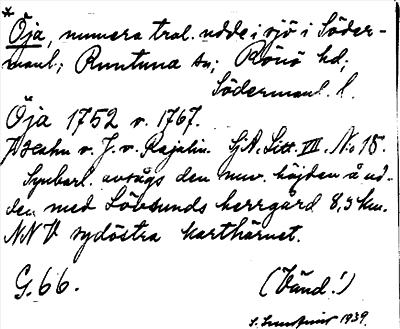 * Öja, numera trol. udde i sjö i Söder-
manl; Runtuna sn; Rönö hd;
Södermanl. l.
Öja 1752 v. 1767.
Hahn v. J. v. Rajalin. SjA. Litt. VII. No 15.
Synbarl. avsågs den nuv. höjden å ud-
den med Lövsunds herrgård 8,5 km.
NNV sydöstra karthörnet.
G. 66. (Vänd!)
S. 1939.